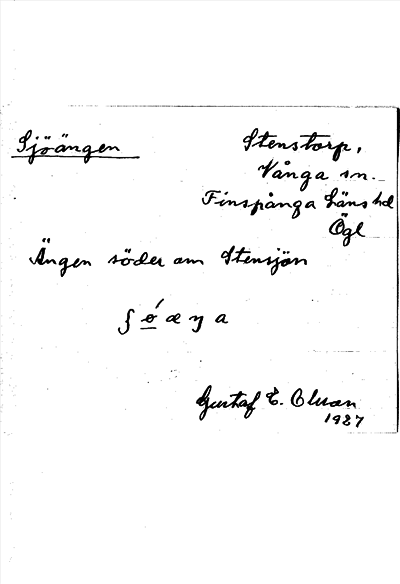 Sjöängen
Stenstorp,
Vånga sn.
Finspånga läns hd
Ögl
Ängen söder om Stensjön
Gustaf E. Olsson
1927